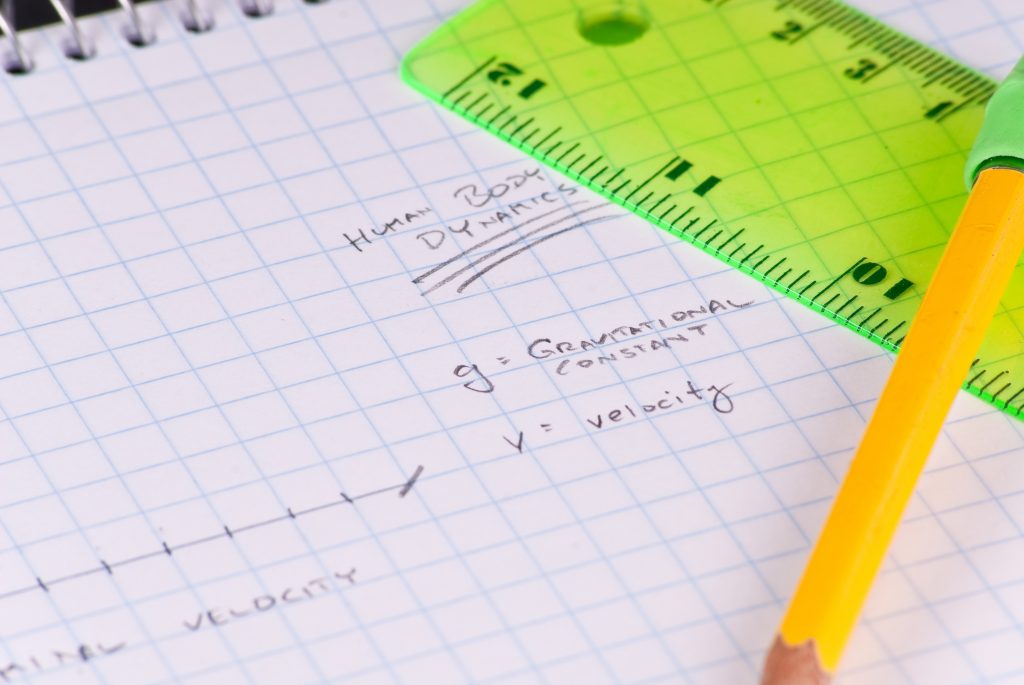 HUMAN BODY
DYNAMICS
g = GRAVITATIONAL
CONSTANT
v = velocity
MINAL VELOCITY
12
11
10
2
3